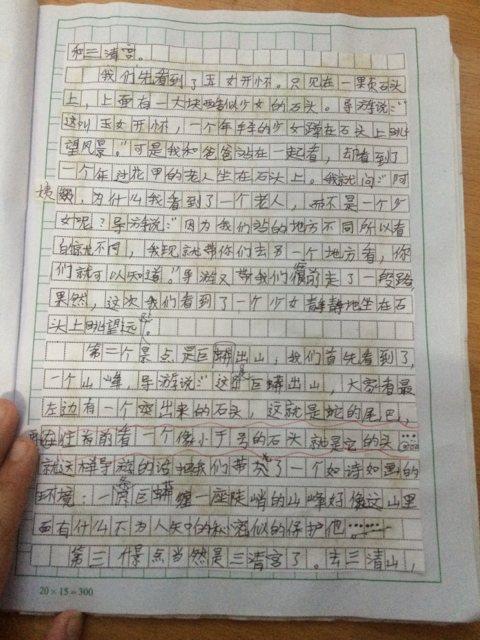 和三清宫。
我们先看到了玉女开怀。只见在一颗石头
上，上面有一大块酷似少女的石头。导游说：“
这叫玉女开怀，一个年轻的少女蹲在石头上眺
望风景。”可是我和爸爸站在一起看，却看到了
一个年过花甲的老人坐在石头上。我就问：“阿
姨，为什么我看到了一个老人，而不是一个少
女呢？导游说：“因为我们站的地方不同所以看
的不同，我现就带你们去另一个地方看，你
们就可以知道。”导游又带我们往前走了一段路，
果然，这次我们看到了一个少女静静地坐在石
头上眺望远
第二个景点是巨蟒出山，我们首先看到了，
一个山峰，导游说：“这是巨蟒出山，大家看最
左边有一个突出来的石头，这就是蛇的尾巴，
现在往前看一个像小子的石头就是它的头……
就这样导游的话把我们带入了一个如诗如画的
环境：一条巨蟒缠一座陡峭的山峰好像这山里
面有什么不为人知的秘密似的保护他……
第三个景点当然是三清宫了。去三清山，
20×15=300